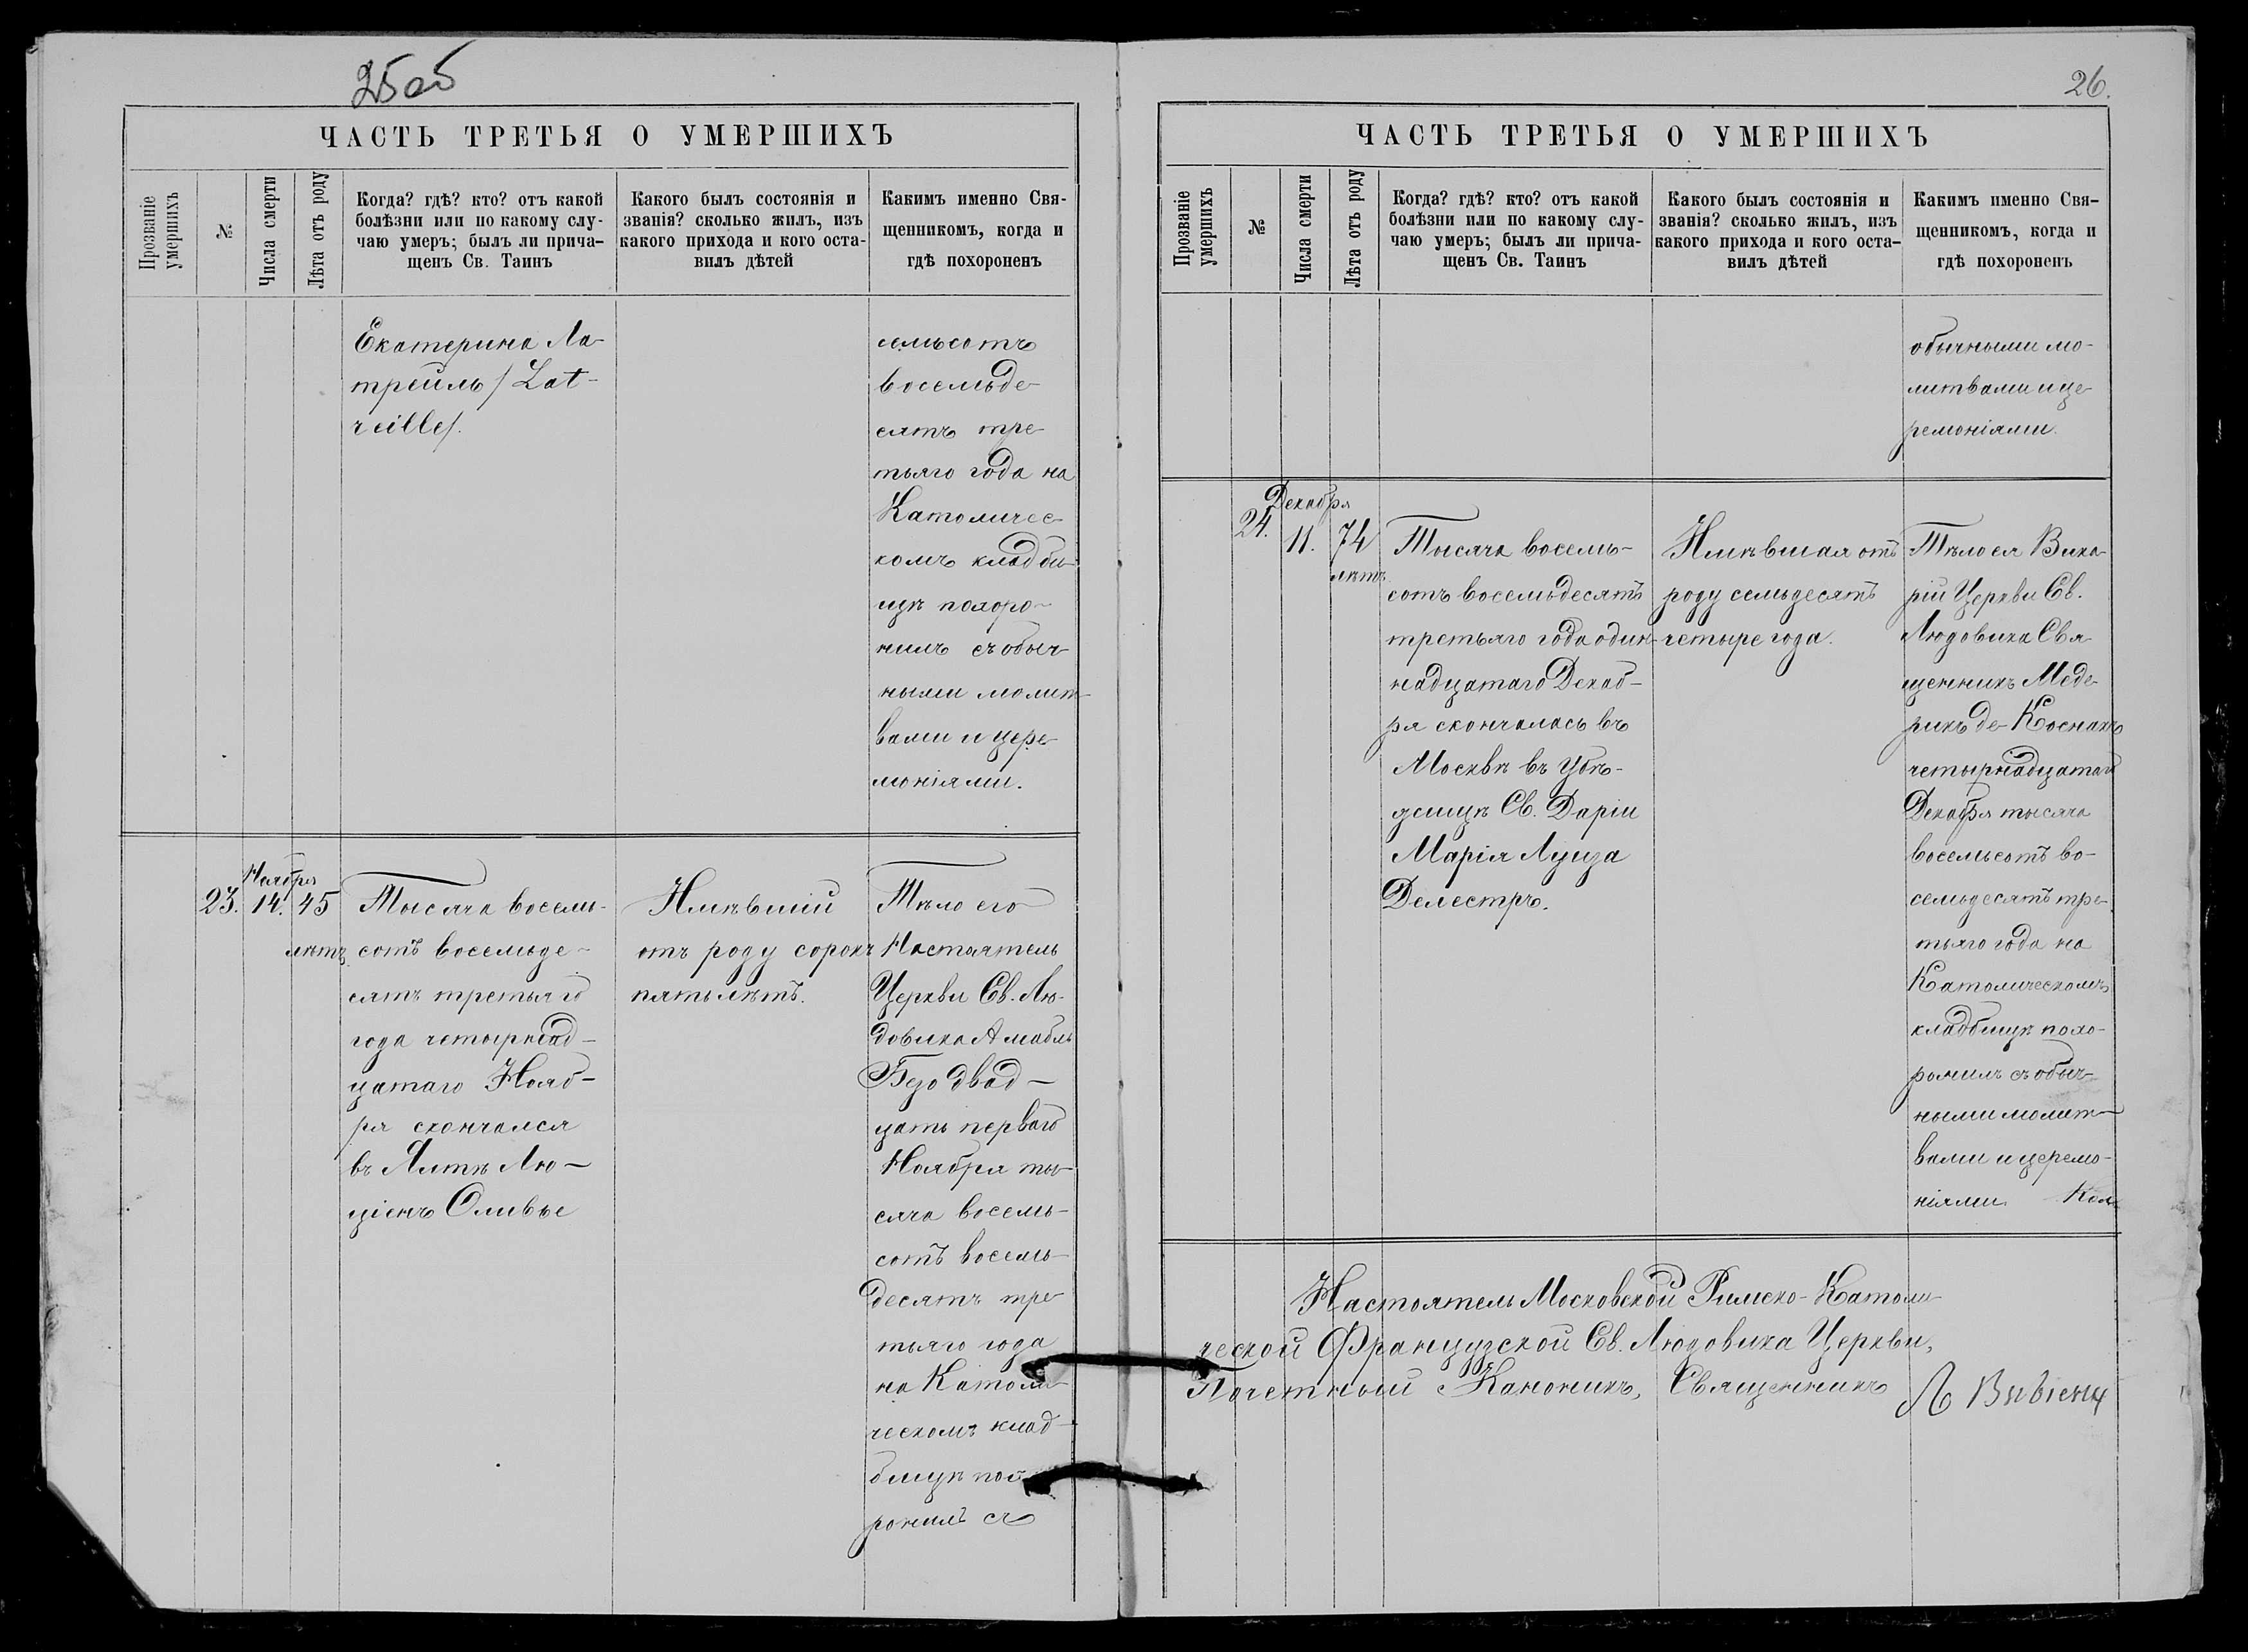 25 об
ЧАСТЬ ТРЕТЬЯ О УМЕРШИХЪ
Прозваніе умершихъ
№
Числа смерти
Лѣта отъ роду
Когда? гдѣ? кто? отъ какой
болѣзни или по какому слу-
чаю умеръ; былъ ли прича-
щенъ Св. Таинъ
Какого былъ состоянія и
званія? сколько жилъ, изъ
какого прихода и кого оста-
вилъ дѣтей
Какимъ именно Свя-
щенникомъ, когда и
гдѣ похороненъ
Екатерина Ла-
трейль / Lat-
reille/.
семьсотъ
восемьде-
сятъ тре-
тьяго года на
Католичес-
комъ кладби-
щѣ похоро-
нилъ съ обыч-
ными молит-
вами и цере-
моніями.
23.
Ноября
14.
45
лѣтъ
Тысяча восемь-
сотъ восемьде-
сятъ третьяго
года четырнад-
цатаго Нояб-
ря скончался
въ Ялтѣ Лю-
ціенъ Оливье
Имѣвшій
отъ роду сорокъ
пять лѣтъ.
Тѣло его
Настоятель
Церкви Св. Лю-
довика Амабль
Безо двад-
цать перваго
Ноября ты-
сяча восемь-
сотъ восемь-
десятъ тре-
тьяго года
на Католи-
ческомъ клад-
бищѣ похо-
ронилъ съ
26.
ЧАСТЬ ТРЕТЬЯ О УМЕРШИХЪ
Прозваніе умершихъ
№
Числа смерти
Лѣта отъ роду
Когда? гдѣ? кто? отъ какой
болѣзни или по какому слу-
чаю умеръ; былъ ли прича-
щенъ Св. Таинъ
Какого былъ состоянія и
званія? сколько жилъ, изъ
какого прихода и кого оста-
вилъ дѣтей
Какимъ именно Свя-
щенникомъ, когда и
гдѣ похороненъ
обычными мо-
литвами и це-
ремоніями.
24.
Декабря
11.
74
лѣтъ
Тысяча восемь-
сотъ восемьдесятъ
третьяго года один-
надцатаго Декаб-
ря скончалась въ
Москвѣ въ Убѣ-
жищѣ Св. Даріи
Марія Луиза
Делестръ.
Имѣвшая отъ
роду семьдесятъ
четыре года.
Тѣло ея Вика-
рій Церкви Св.
Людовика Свя-
щенникъ Меде-
рикъ де Коснакъ
четырнадцатаго
Декабря тысяча
восемьсотъ во-
семьдесятъ тре-
тьяго года на
Католическомъ
кладбищѣ похо-
ронилъ съ обыч-
ными молит-
вами и церемо-
ніями.
Настоятель Московской Римско-Католи-
ческой Французской Св. Людовика Церкви,
Почетный Каноникъ, Священникъ Л Вивіенъ